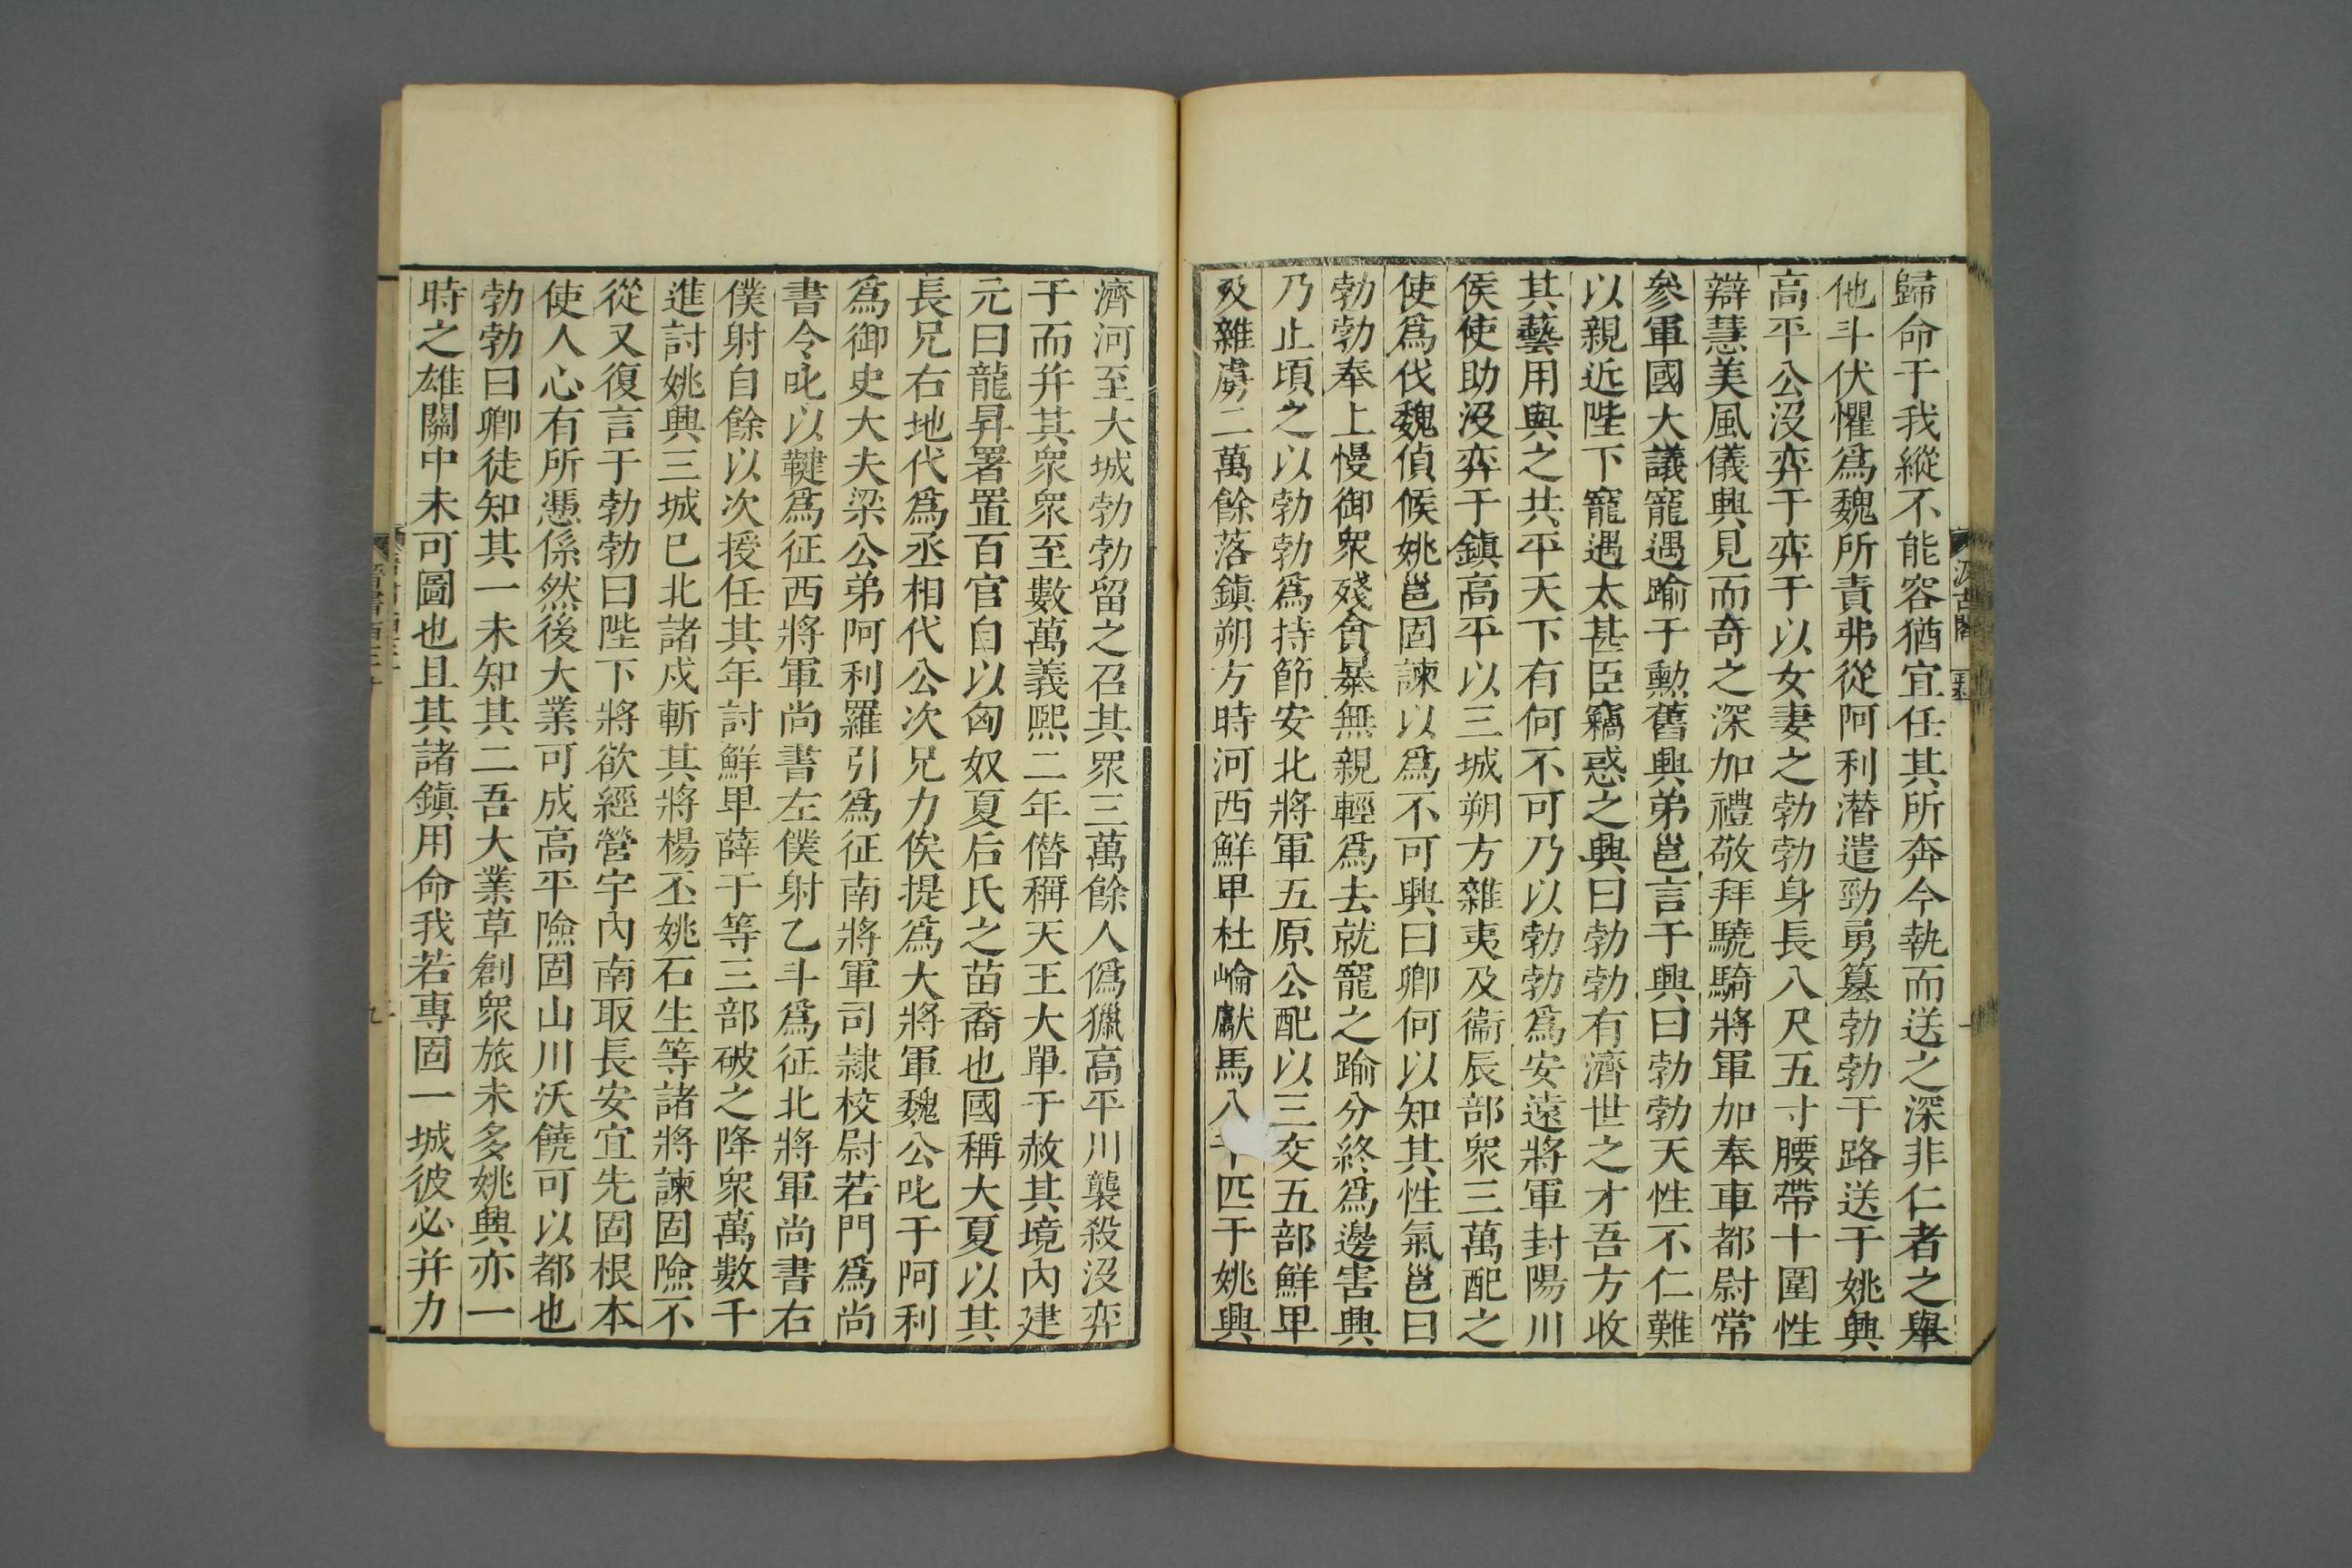 歸命于我縱不能容猶宜任其所奔今執而送之深非仁者之舉
他斗伏懼爲魏所責弗從阿利潛遣勁勇篡勃勃于路送于姚興
高平公没弈于弈于以女妻之勃勃身長八尺五寸腰帶十圍性
辯慧美風儀興見而奇之深加禮敬拜驍騎將軍加奉車都尉常
參軍國大議寵遇踰于勲舊興弟邕言于興曰勃勃天性不仁難
以親近陛下寵遇太甚臣竊惑之興曰勃勃有濟世之才吾方收
其藝用與之共平天下有何不可乃以勃勃爲安遠將軍封陽川
侯使助没弈于鎮高平以三城朔方雜夷及衞辰部衆三萬配之
使爲伐魏偵候姚邕固諫以爲不可興曰卿何以知其性氣邕曰
勃勃奉上慢御衆殘貪暴無親輕爲去就寵之踰分終爲邊害興
乃止頃之以勃勃爲持節安北將軍五原公配以三交五部鮮卑
及雜虜二萬餘落鎮朔方時河西鮮卑杜崘獻馬八千匹于姚興
濟河至大城勃勃留之召其衆三萬餘人僞獵高平川襲殺没弈
于而并其衆衆至數萬義熙二年僭稱天王大單于赦其境内建
元曰龍昇署置百官自以匈奴夏后氏之苗裔也國稱大夏以其
長兄右地代爲丞相代公次兄力俟提爲大將軍魏公叱于阿利
爲御史大夫梁公弟阿利羅引爲征南將軍司隷校尉若門爲尚
書令叱以鞬爲征西將軍尚書左僕射乙斗爲征北將軍尚書右
僕射自餘以次授任其年討鮮卑薛于等三部破之降衆萬數千
進討姚興三城已北諸戍斬其將楊丕姚石生等諸將諫固險不
從又復言于勃勃曰陛下將欲經營宇内南取長安宜先固根本
使人心有所憑係然後大業可成高平險固山川沃饒可以都也
勃勃曰卿徒知其一未知其二吾大業草創衆旅未多姚興亦一
時之雄關中未可圖也且其諸鎮用命我若專固一城彼必并力